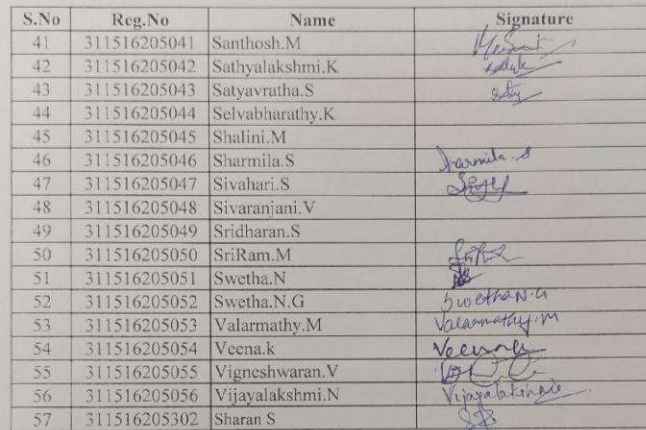 S.No Reg.No Name Signature
41 311516205041 Santhosh.M
42 311516205042 Sathyalakshmi.K
43 311516205043 Satyavratha.S Saty
44 311516205044 Selvabharathy.K
45 311516205045 Shalini.M
46 311516205046 Sharmila.S Sarmila.S
47 311516205047 Sivahari.S
48 311516205048 Sivaranjani.V
49 311516205049 Sridharan.S
50 311516205050 SriRam.M
51 311516205051 Swetha.N
52 311516205052 Swetha.N.G Swetha N.G
53 311516205053 Valarmathy.M Valarmathy.M
54 311516205054 Veena.k Veena
55 311516205055 Vigneshwaran.V
56 311516205056 Vijayalakshmi.N Vijayalakshmi
57 311516205302 Sharan S